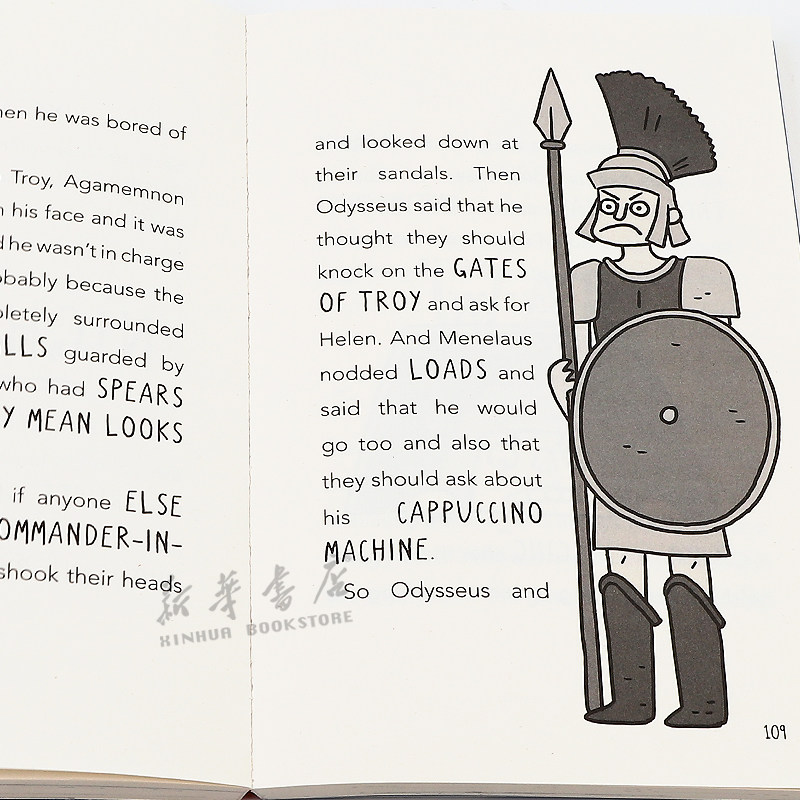 he was bored of
Troy, Agamemnon
his face and it was
he wasn't in charge
because the
surrounded
guarded by
who had SPEARS
MEAN LOOKS
if anyone ELSE
COMMANDER-IN-
shook their heads
and looked down at
their sandals. Then
Odysseus said that he
thought they should
knock on the GATES
OF TROY and ask for
Helen. And Menelaus
nodded LOADS and
said that he would
go too and also that
they should ask about
his CAPPUCCINO
MACHINE.
So Odysseus and
109
新华書店
XINHUA BOOKSTORE